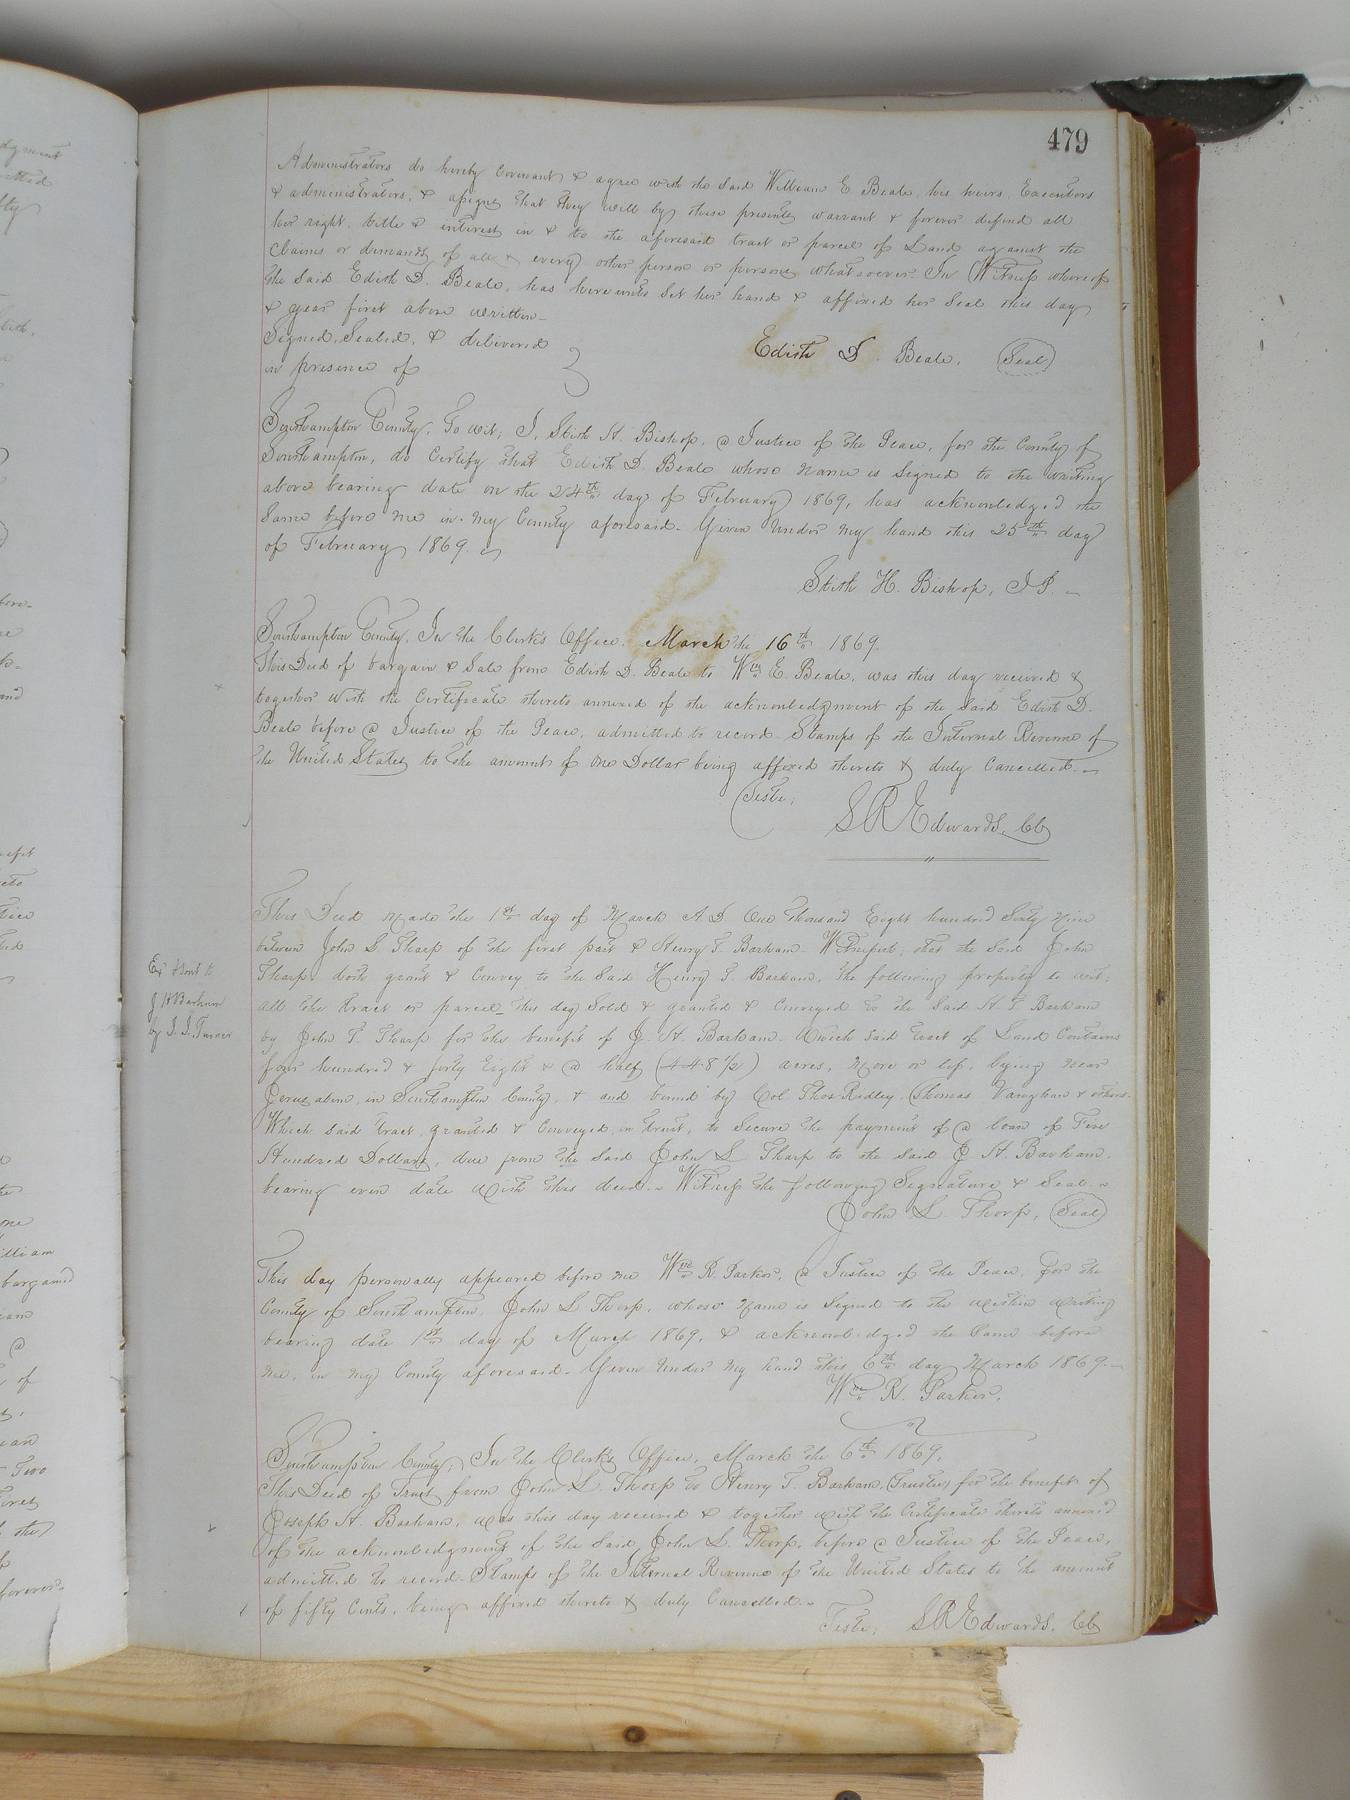 479
Administrators do hereby Covenant & agree with the Said William E Beale, his heirs, Executors
& administrators, & assigns that they will by these presents warrant & forever defend all
her right, title & interest in & to the aforesaid tract or parcel of Land against the
Claims or demands of all & every other person or persons whatsoever. In Witness whereof
the Said Edith D. Beale, has hereunto Set her hand & affixed her Seal this day
& year first above written-
Signed, Sealed, & delivered
in presence of
Edith D. Beale, (Seal)
Southampton County, To wit; I, Stith H. Bishop, a Justice of the Peace, for the County of
Southampton, do Certify that Edith D. Beale whose name is Signed to the writing
above bearing date on the 24th day of February 1869, has acknowledged the
Same before me in my County aforesaid. Given Under my hand this 25th day
of February 1869.
Stith H. Bishop, J.P.
Southampton County, In the Clerk's Office, March the 16th 1869.
This Deed of bargain & Sale from Edith D. Beale to Wm E. Beale, was this day received &
together with the Certificate thereto annexed of the acknowledgment of the Said Edith D.
Beale before a Justice of the Peace, admitted to record. Stamps of the Internal Revenue of
the United States to the amount of One Dollar being affixed thereto & duly Cancelled.
Teste,
S R Edwards, CC
This Deed Made the 1st day of March A D One thousand Eight hundred Sixty Nine
between John L Tharp of the first part & Henry T. Barham- Witnesseth, that the Said John
Tharp doth grant & Convey to the Said Henry T. Barham, the following property to wit:
all the tract or parcel this day Sold & granted & Conveyed to the Said H T Barham
by John T. Tharp for the benefit of J. H. Barham- Which Said tract of Land Contains
four hundred & forty Eight & a half (448 1/2) acres, More or less, lying near
Jerusalem, in Southampton County, & and bound by Col Thos Ridley, Thomas Vaughan & others.
Which Said tract, granted & Conveyed, in trust, to Secure the payment of a loan of Five
Hundred Dollars, due from the Said John L Tharp to the Said J H. Barham,
bearing even date With this deed.- Witness the following Signature & Seal.
John L Thorp, (Seal)
J H Barham
by J. J. Turner
This day personally appeared before me Wm R. Parker, a Justice of the Peace, for the
County of Southampton, John L Thorp, whose Name is Signed to the within Writing
bearing date 1st day of March 1869, & acknowledged the Same before
me, in my County aforesaid. Given Under My hand this 6th day March 1869.
Wm R. Parker,
Southampton County, In the Clerk's Office, March the 6th 1869.
This Deed of Trust from John L. Thorp to Henry T. Barham, (Trustee) for the benefit of
Joseph H. Barham, was this day received & together with the Certificate thereto annexed
of the acknowledgment of the Said John L. Thorp, before a Justice of the Peace,
admitted to record. Stamps of the Internal Revenue of the United States to the amount
of fifty Cents, being affixed thereto & duly Cancelled.
Teste, S R Edwards, CC